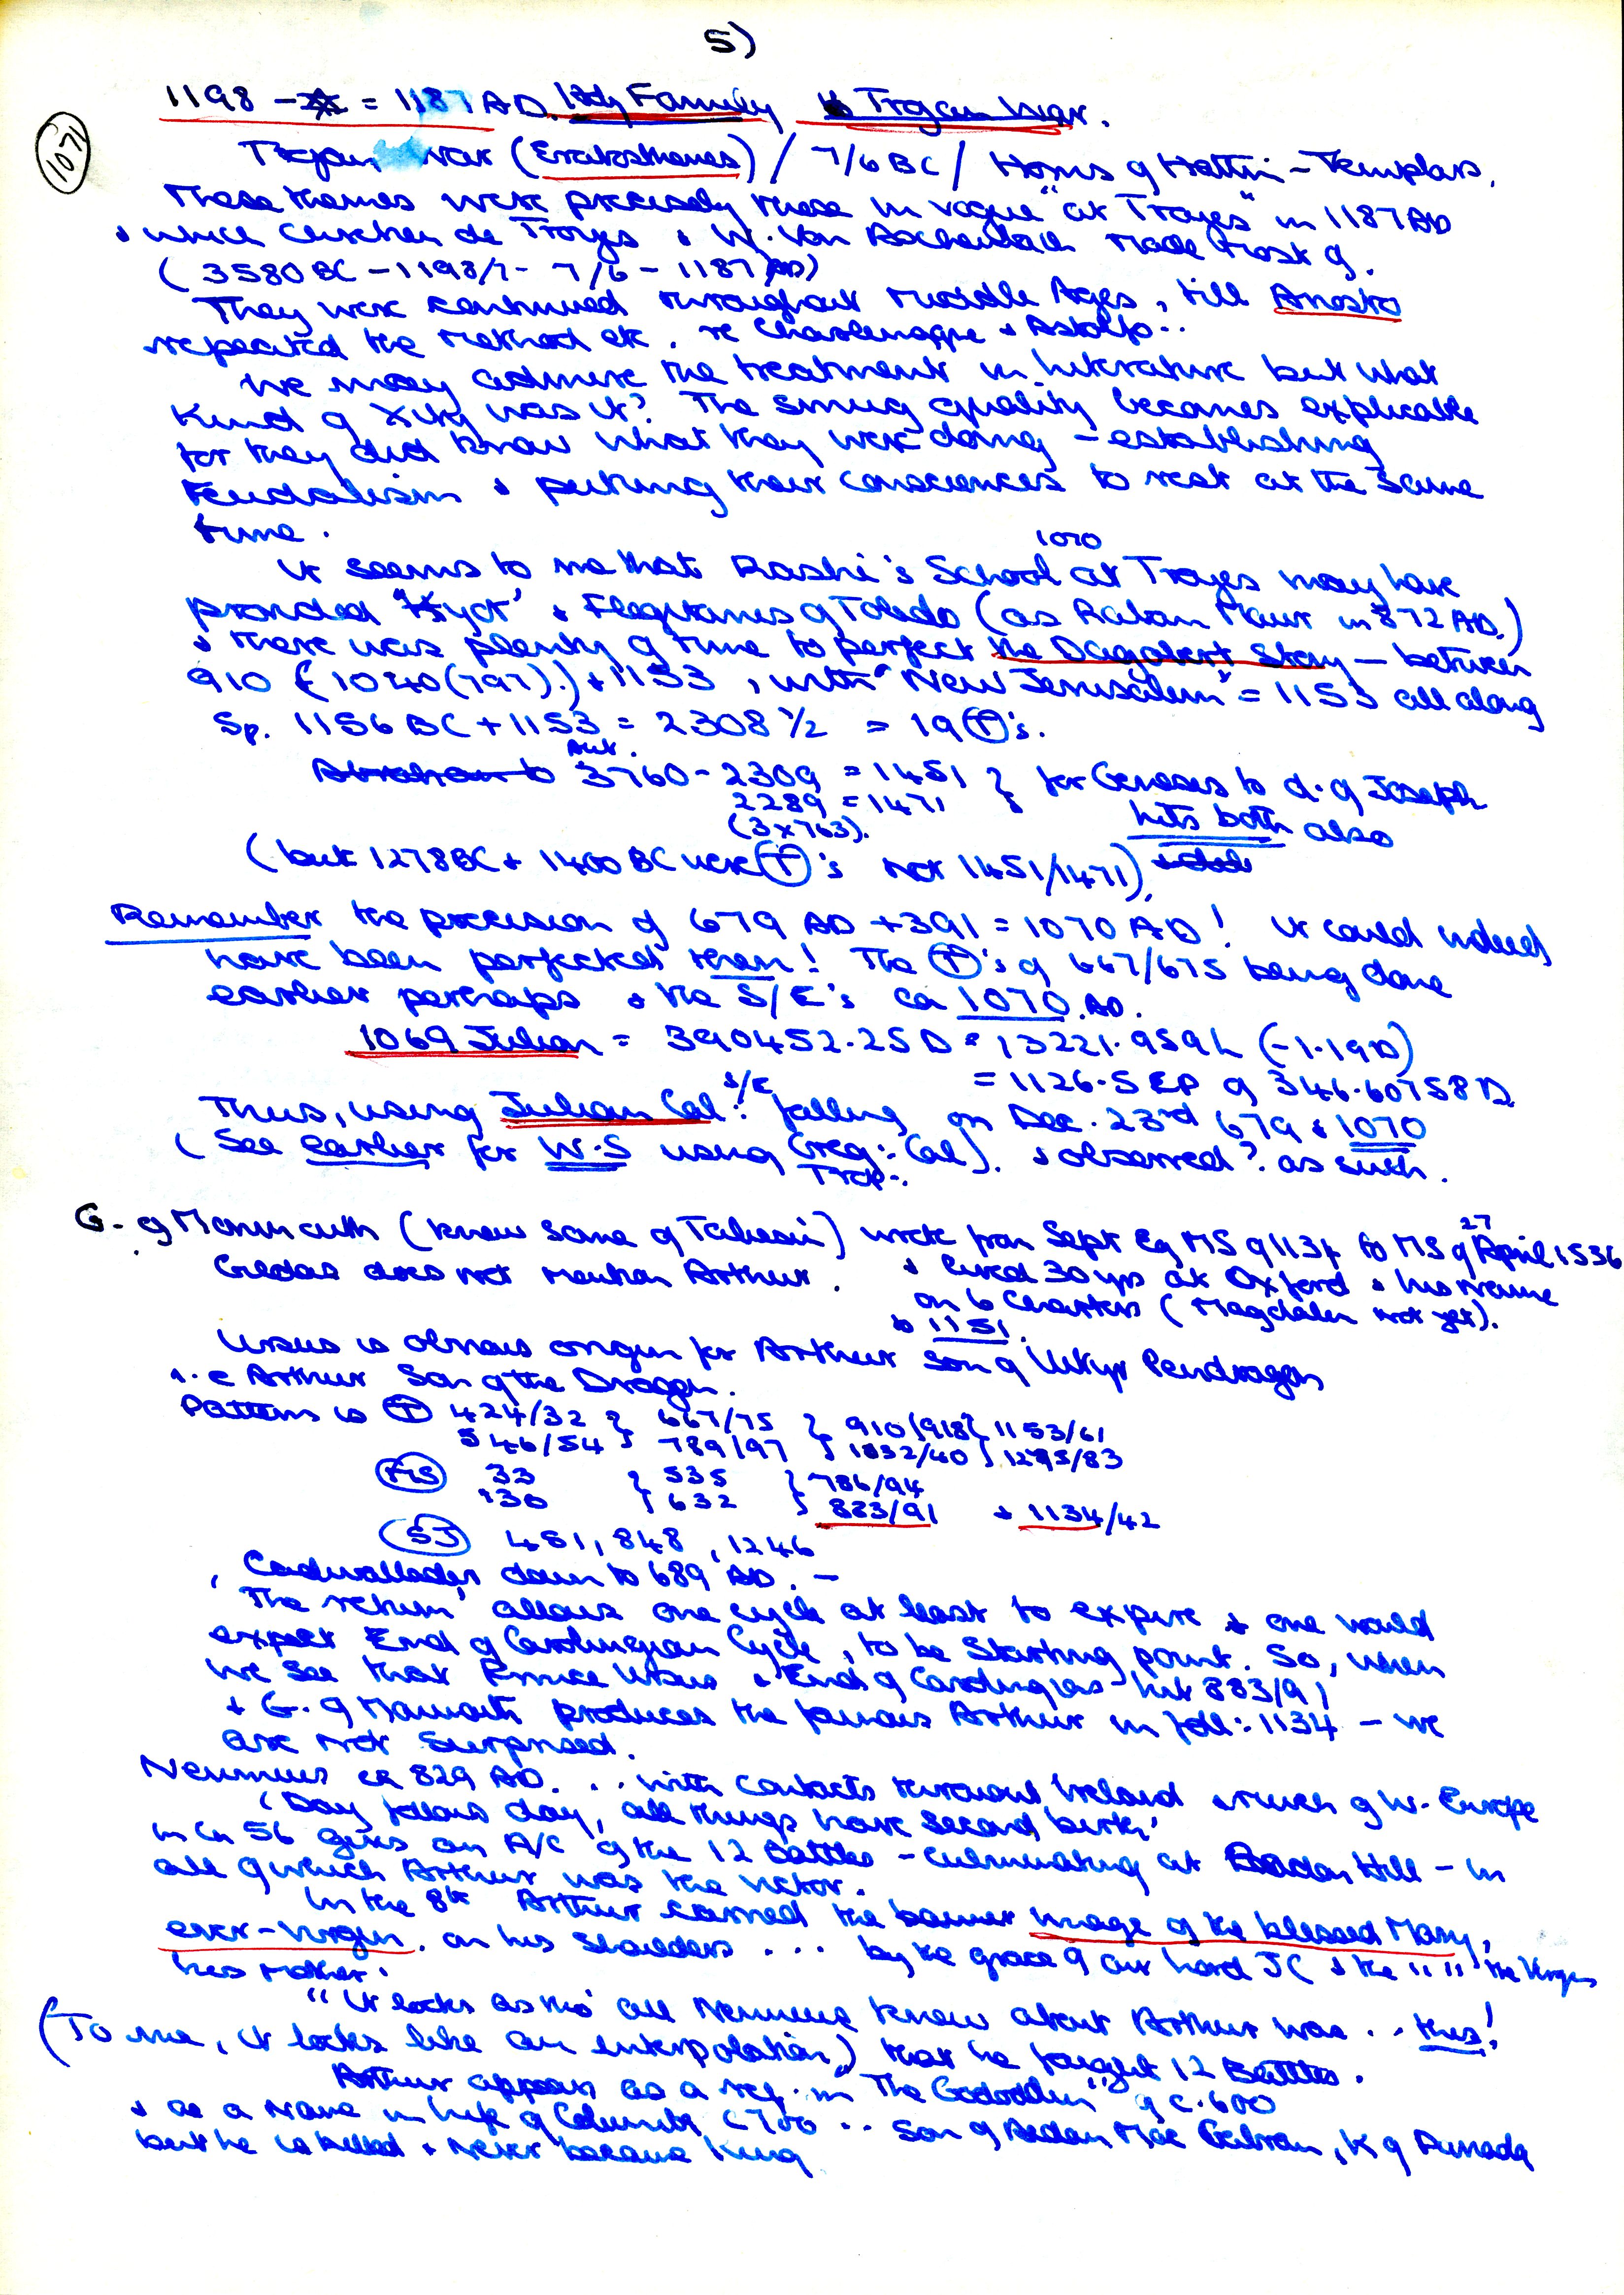 5)
1071
1198 - = 1187 AD. Holy Family & Trojan War.
Trojan War (Eratosthenes) / 7/6 BC / Horns of Hattin - Templars.
These themes were precisely those in vogue "at Troyes" in 1187 AD
& which Chrétien de Troyes & W. Von Eschenbach made most of.
(3580 BC - 1198/7 - 7/6 - 1187 AD)
They were continued throughout Middle Ages, till Ariosto
repeated the method etc. re Charlemagne & Astolfo..
We may admire the treatment in literature but what
kind of Xity was it? The smug quality becomes explicable
for they did know what they were doing - establishing
Feudalism & putting their consciences to rest at the same
time.
1070
It seems to me that Rashi's School at Troyes may have
provided "Kyot" & Flegitanes of Toledo (as Raban Maur in 872 AD.)
& there was plenty of time to perfect the Dagobert Story - between
910 (1040 (797).) & 1153, with "New Jerusalem" = 1153 all along
Sp. 1156 BC + 1153 = 2308 1/2 = 19 (T)'s.
Abraham to 3760 - 2309 = 1451 } for Genesis to d. of Joseph
2289 = 1471 }
(3 x 763). hits both also
(but 1278 BC & 1400 BC were (T)'s not 1451/1471).
Remember the precision of 679 AD + 391 = 1070 AD! It could indeed
have been perfected then! The (T)'s of 667/675 being done
earlier perhaps & the S/E's ca 1070 AD.
1069 Julian = 390452.25 D = 13221.959 L (-1.19D)
= 1126.5 EP of 346.60758 D
Thus, using Julian Cal: S/E falling on Dec. 23rd 679 & 1070
(See earlier for W.S using Greg: Cal). & observed? as such.
Trop.
G. of Monmouth (knew some of Taliesin) wrote from Sept Eq MS of 1134 to MS of April 27 1536
Gildas does not mention Arthur. & lived 30 yrs at Oxford & his name
on 6 Charters (Magdalen not yet).
to 1151.
Ursus is obvious origin for Arthur Son of Uthyr Pendragon
i.e Arthur Son of the Dragon.
Pattern is (T) 424/32 } 667/75 } 910/918 } 1153/61
546/54 } 789/97 } 1032/40 } 1275/83
(MS) 33 } 535 } 786/94
130 } 632 } 883/91 & 1134/42
(SJ) 451, 848, 1246
Cadwallader down to 689 AD. -
'The return' allows one cycle at least to expire & one would
expect End of Carolingian Cycle, to be Starting point. So, when
we see that Prince Ursus & End of Carolingians hit 883/91
& G. of Monmouth produces the famous Arthur in foll: 1134 - we
are not surprised.
Nennius ca 829 AD. .. with contacts throout Ireland & much of W. Europe
'Day follows day, all things have second birth'
in Ch 56 gives an A/C of the 12 Battles - culminating at Badon Hill - in
all of which Arthur was the victor.
In the 8th Arthur carried the banner image of the blessed Mary,
ever-virgin, on his shoulders ... by the grace of our Lord JC & the " " the Virgin
his mother.
"It looks as tho' all Nennius knew about Arthur was .. this!
(To me, it looks like an interpolation,) that he fought 12 Battles.
Arthur appears as a ref. in "The Gododdin" of c. 600
& as a name in Life of Columba C 700 .. Son of Aedan Mac Gabran, K of Dunada
but he is killed & never became King